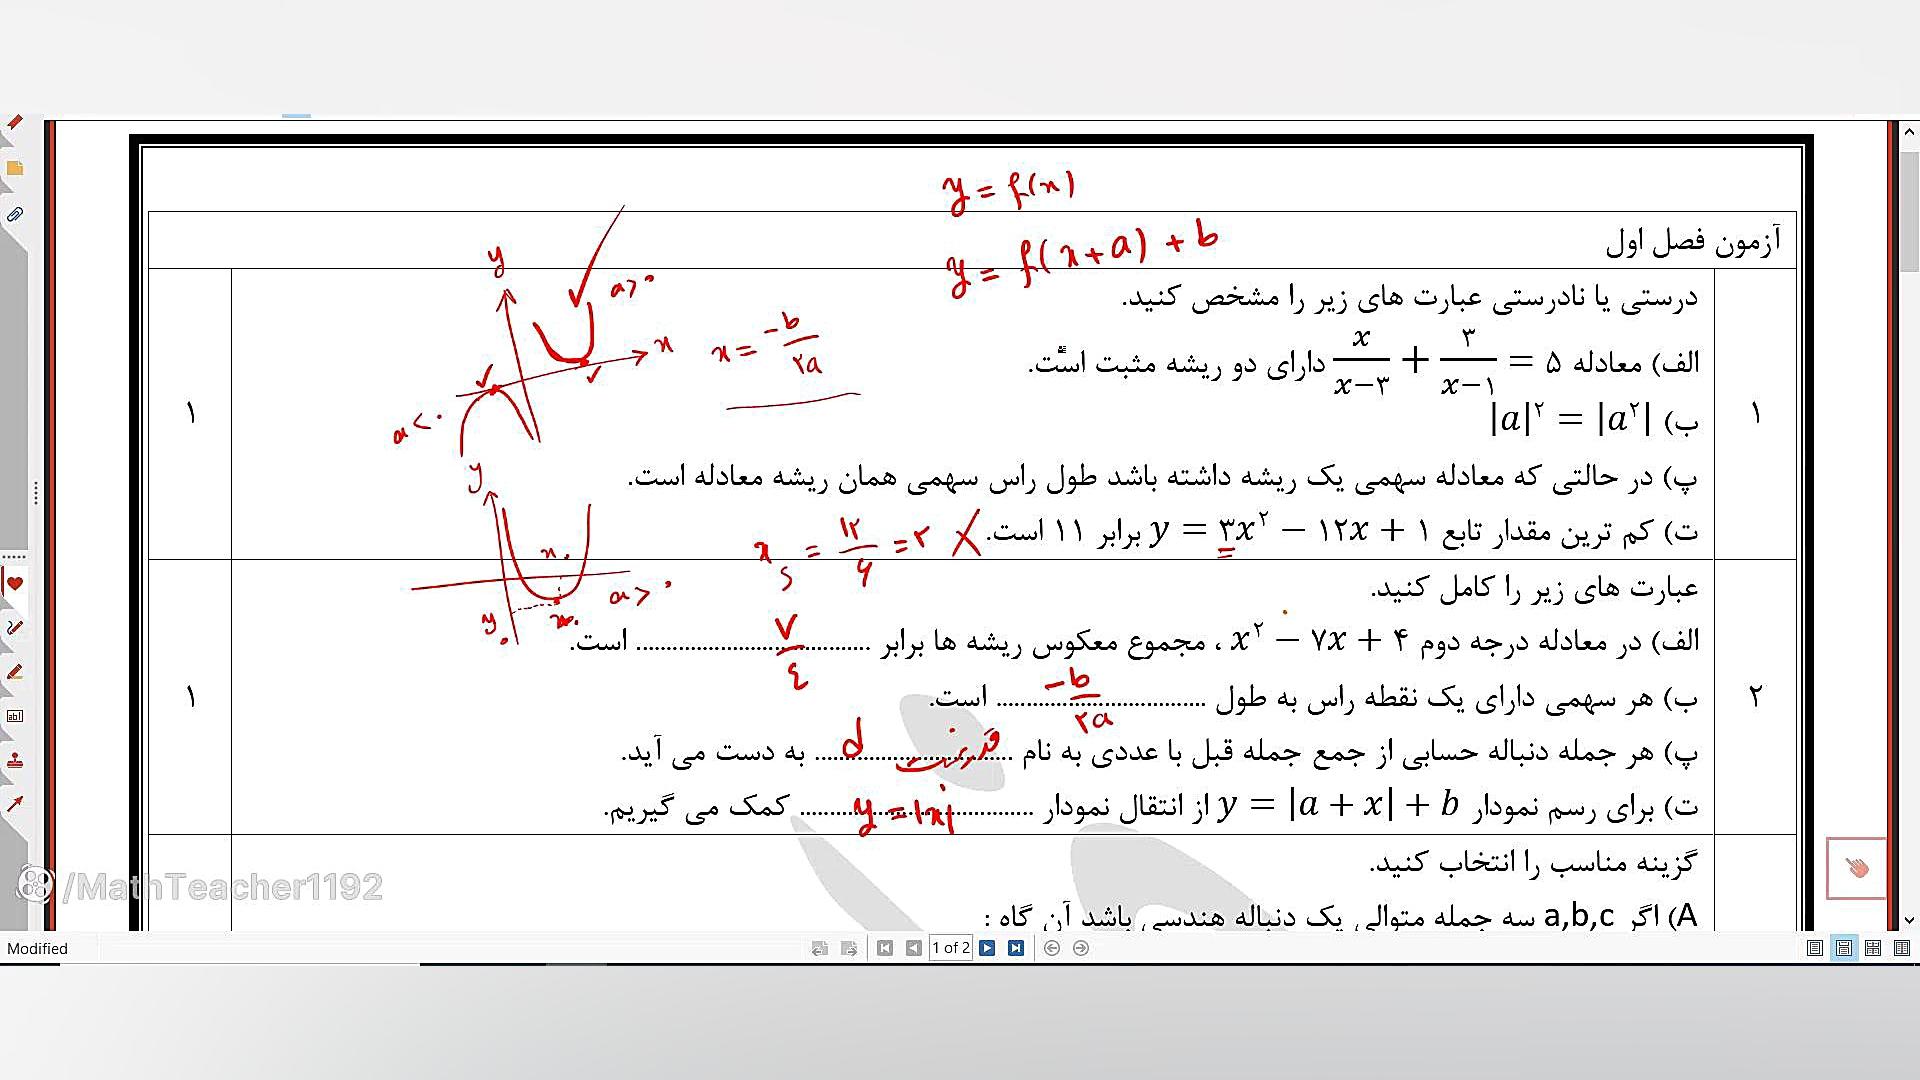 y = f(x)
y = f(x+a) + b
آزمون فصل اول
۱
درستی یا نادرستی عبارت های زیر را مشخص کنید.
الف) معادله x/(x−۳) + ۳/(x−۱) = ۵ دارای دو ریشه مثبت است.
ب) |a|۲ = |a۲|
پ) در حالتی که معادله سهمی یک ریشه داشته باشد طول راس سهمی همان ریشه معادله است.
ت) کم ترین مقدار تابع y = ۳x۲ − ۱۲x + ۱ برابر ۱۱ است.
۱
y
a>۰
x
x = −b/۲a
a<۰
y
x۰
a>۰
y۰
x۰
xs = ۱۲/۶ = ۲
۲
عبارت های زیر را کامل کنید.
الف) در معادله درجه دوم x۲ − ۷x + ۴ ، مجموع معکوس ریشه ها برابر ........ ۷/۴ ........ است.
ب) هر سهمی دارای یک نقطه راس به طول ........ −b/۲a ........ است.
پ) هر جمله دنباله حسابی از جمع جمله قبل با عددی به نام ........ d ........ به دست می آید.
ت) برای رسم نمودار y = |a + x| + b از انتقال نمودار ........ y = |x| ........ کمک می گیریم.
۱
گزینه مناسب را انتخاب کنید.
A) اگر a,b,c سه جمله متوالی یک دنباله هندسی باشد آن گاه :
/MathTeacher1192
Modified
1 of 2